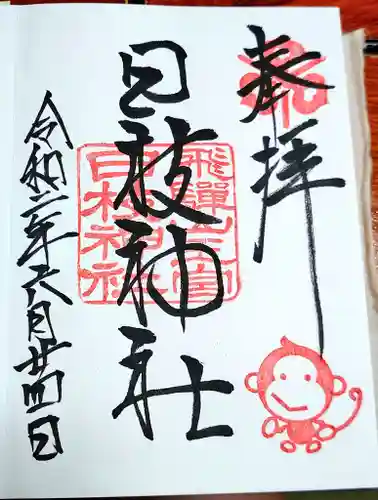 奉拝
日枝神社
飛騨山王宮
日枝神社
令和二年六月廿四日